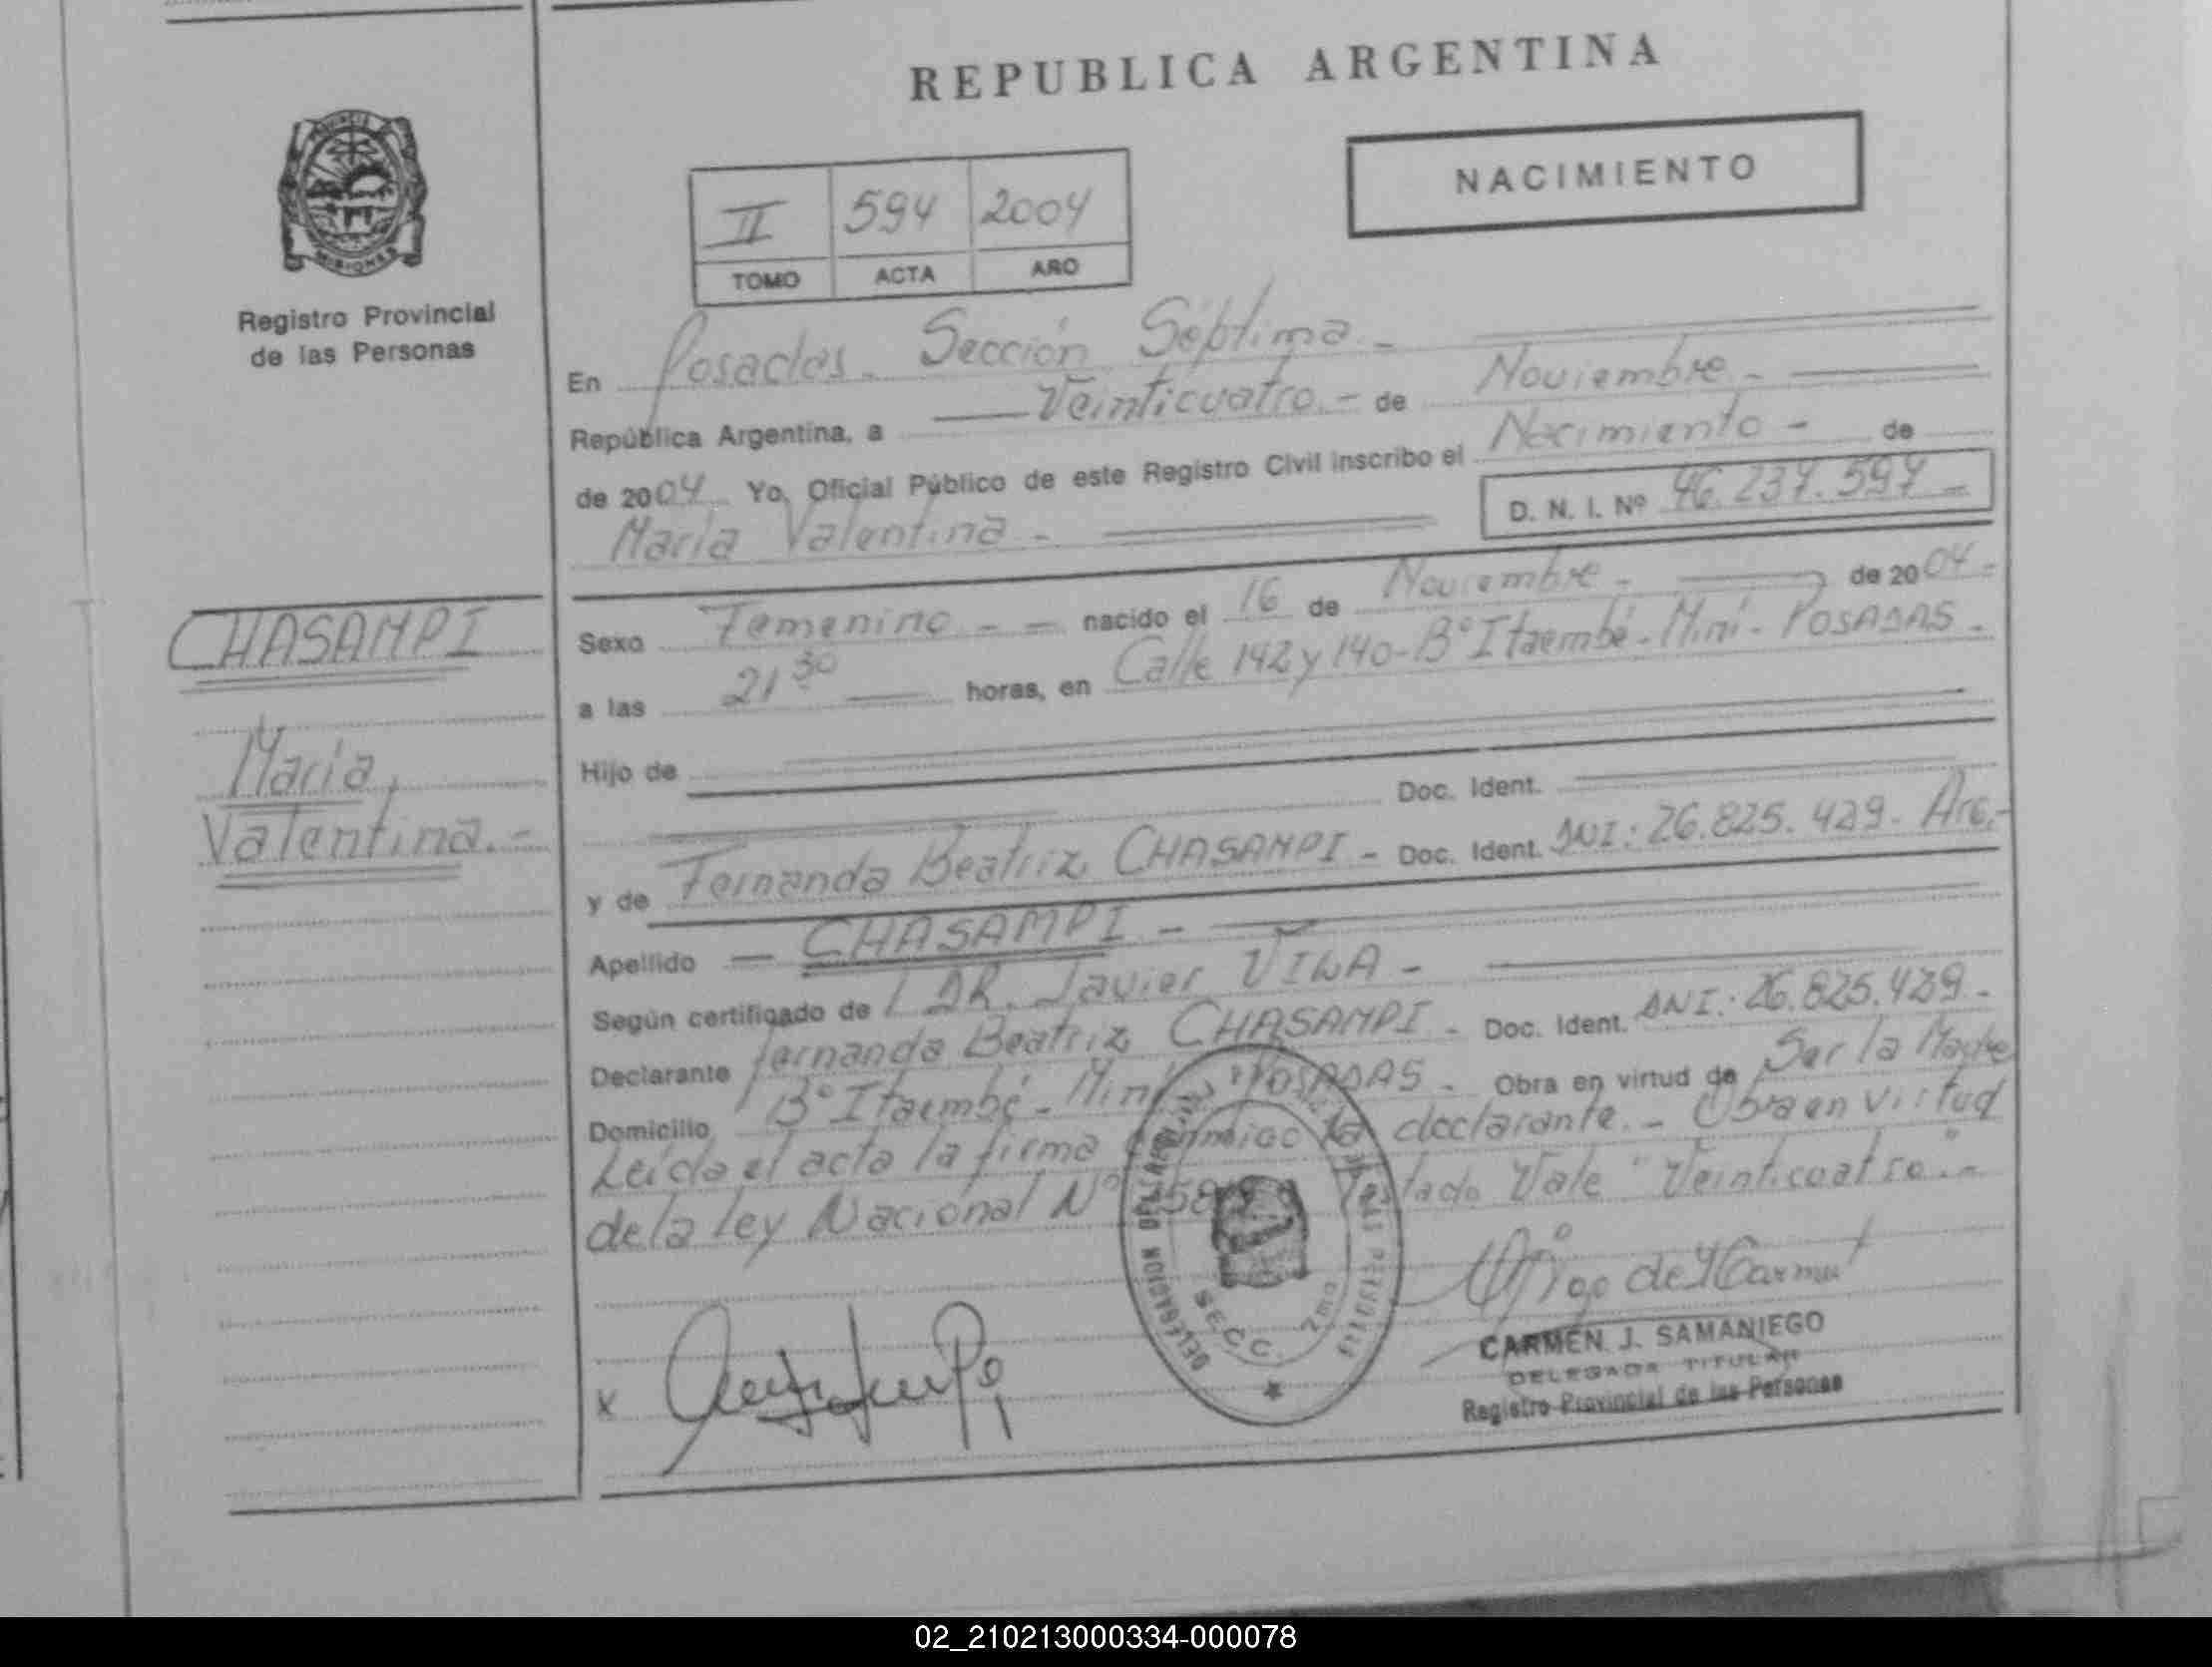 REPUBLICA ARGENTINA
NACIMIENTO
II 594 2004
TOMO ACTA AÑO
PROVINCIA DE
MISIONES
Registro Provincial
de las Personas
En Posadas. Sección Séptima.-
República Argentina, a Veinticuatro.- de Noviembre.-
de 2004 Yo, Oficial Público de este Registro Civil inscribo el Nacimiento - de
María Valentina.- D. N. I. Nº 46.237.597-
CHASAMPI
María,
Valentina.-
Sexo Femenino.- - nacido el 16 de Noviembre.- de 2004-
a las 21 30 horas, en Calle 142 y 140-B° Itaembé-Miní-POSADAS.
Hijo de
Doc. Ident.
y de Fernanda Beatriz CHASAMPI- Doc. Ident. DNI: 26.825.429. Arg.-
Apellido - CHASAMPI-
Según certificado de DR. Javier VILA-
Declarante Fernanda Beatriz CHASAMPI- Doc. Ident. DNI: 26.825.429-
Domicilio B° Itaembé-Miní POSADAS. Obra en virtud de Ser la Madre
Leída el acta la firma conmigo la declarante.- Obra en virtud
de la ley Nacional N° Testado Vale "Veinticuatro".-
SECC. 7ma
x
CARMEN J. SAMANIEGO
DELEGADA TITULAR
Registro Provincial de las Personas
02_210213000334-000078